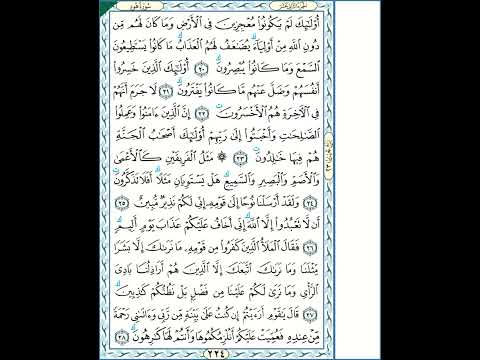 سُورَةُ هُودٍ
الجُزْءُ الثَّانِي عَشَرَ
أُوْلَٰٓئِكَ لَمْ يَكُونُوا۟ مُعْجِزِينَ فِى ٱلْأَرْضِ وَمَا كَانَ لَهُم مِّن
دُونِ ٱللَّهِ مِنْ أَوْلِيَآءَ ۘ يُضَٰعَفُ لَهُمُ ٱلْعَذَابُ ۚ مَا كَانُوا۟ يَسْتَطِيعُونَ
ٱلسَّمْعَ وَمَا كَانُوا۟ يُبْصِرُونَ ٢٠ أُو۟لَٰٓئِكَ ٱلَّذِينَ خَسِرُوٓا۟
أَنفُسَهُمْ وَضَلَّ عَنْهُم مَّا كَانُوا۟ يَفْتَرُونَ ٢١ لَا جَرَمَ أَنَّهُمْ
فِى ٱلْءَاخِرَةِ هُمُ ٱلْأَخْسَرُونَ ٢٢ إِنَّ ٱلَّذِينَ ءَامَنُوا۟ وَعَمِلُوا۟
ٱلصَّٰلِحَٰتِ وَأَخْبَتُوٓا۟ إِلَىٰ رَبِّهِمْ أُو۟لَٰٓئِكَ أَصْحَٰبُ ٱلْجَنَّةِ ۖ
هُمْ فِيهَا خَٰلِدُونَ ٢٣ ۞ مَثَلُ ٱلْفَرِيقَيْنِ كَٱلْأَعْمَىٰ
وَٱلْأَصَمِّ وَٱلْبَصِيرِ وَٱلسَّمِيعِ ۚ هَلْ يَسْتَوِيَانِ مَثَلًا ۚ أَفَلَا تَذَكَّرُونَ
٢٤ وَلَقَدْ أَرْسَلْنَا نُوحًا إِلَىٰ قَوْمِهِۦٓ إِنِّى لَكُمْ نَذِيرٌ مُّبِينٌ ٢٥
أَن لَّا تَعْبُدُوٓا۟ إِلَّا ٱللَّهَ ۖ إِنِّىٓ أَخَافُ عَلَيْكُمْ عَذَابَ يَوْمٍ أَلِيمٍ
٢٦ فَقَالَ ٱلْمَلَأُ ٱلَّذِينَ كَفَرُوا۟ مِن قَوْمِهِۦ مَا نَرَىٰكَ إِلَّا بَشَرًا
مِّثْلَنَا وَمَا نَرَىٰكَ ٱتَّبَعَكَ إِلَّا ٱلَّذِينَ هُمْ أَرَاذِلُنَا بَادِىَ
ٱلرَّأْىِ وَمَا نَرَىٰ لَكُمْ عَلَيْنَا مِن فَضْلٍۭ بَلْ نَظُنُّكُمْ كَٰذِبِينَ
٢٧ قَالَ يَٰقَوْمِ أَرَءَيْتُمْ إِن كُنتُ عَلَىٰ بَيِّنَةٍ مِّن رَّبِّى وَءَاتَىٰنِى رَحْمَةً
مِّنْ عِندِهِۦ فَعُمِّيَتْ عَلَيْكُمْ أَنُلْزِمُكُمُوهَا وَأَنتُمْ لَهَا كَٰرِهُونَ ٢٨
٢٢٤